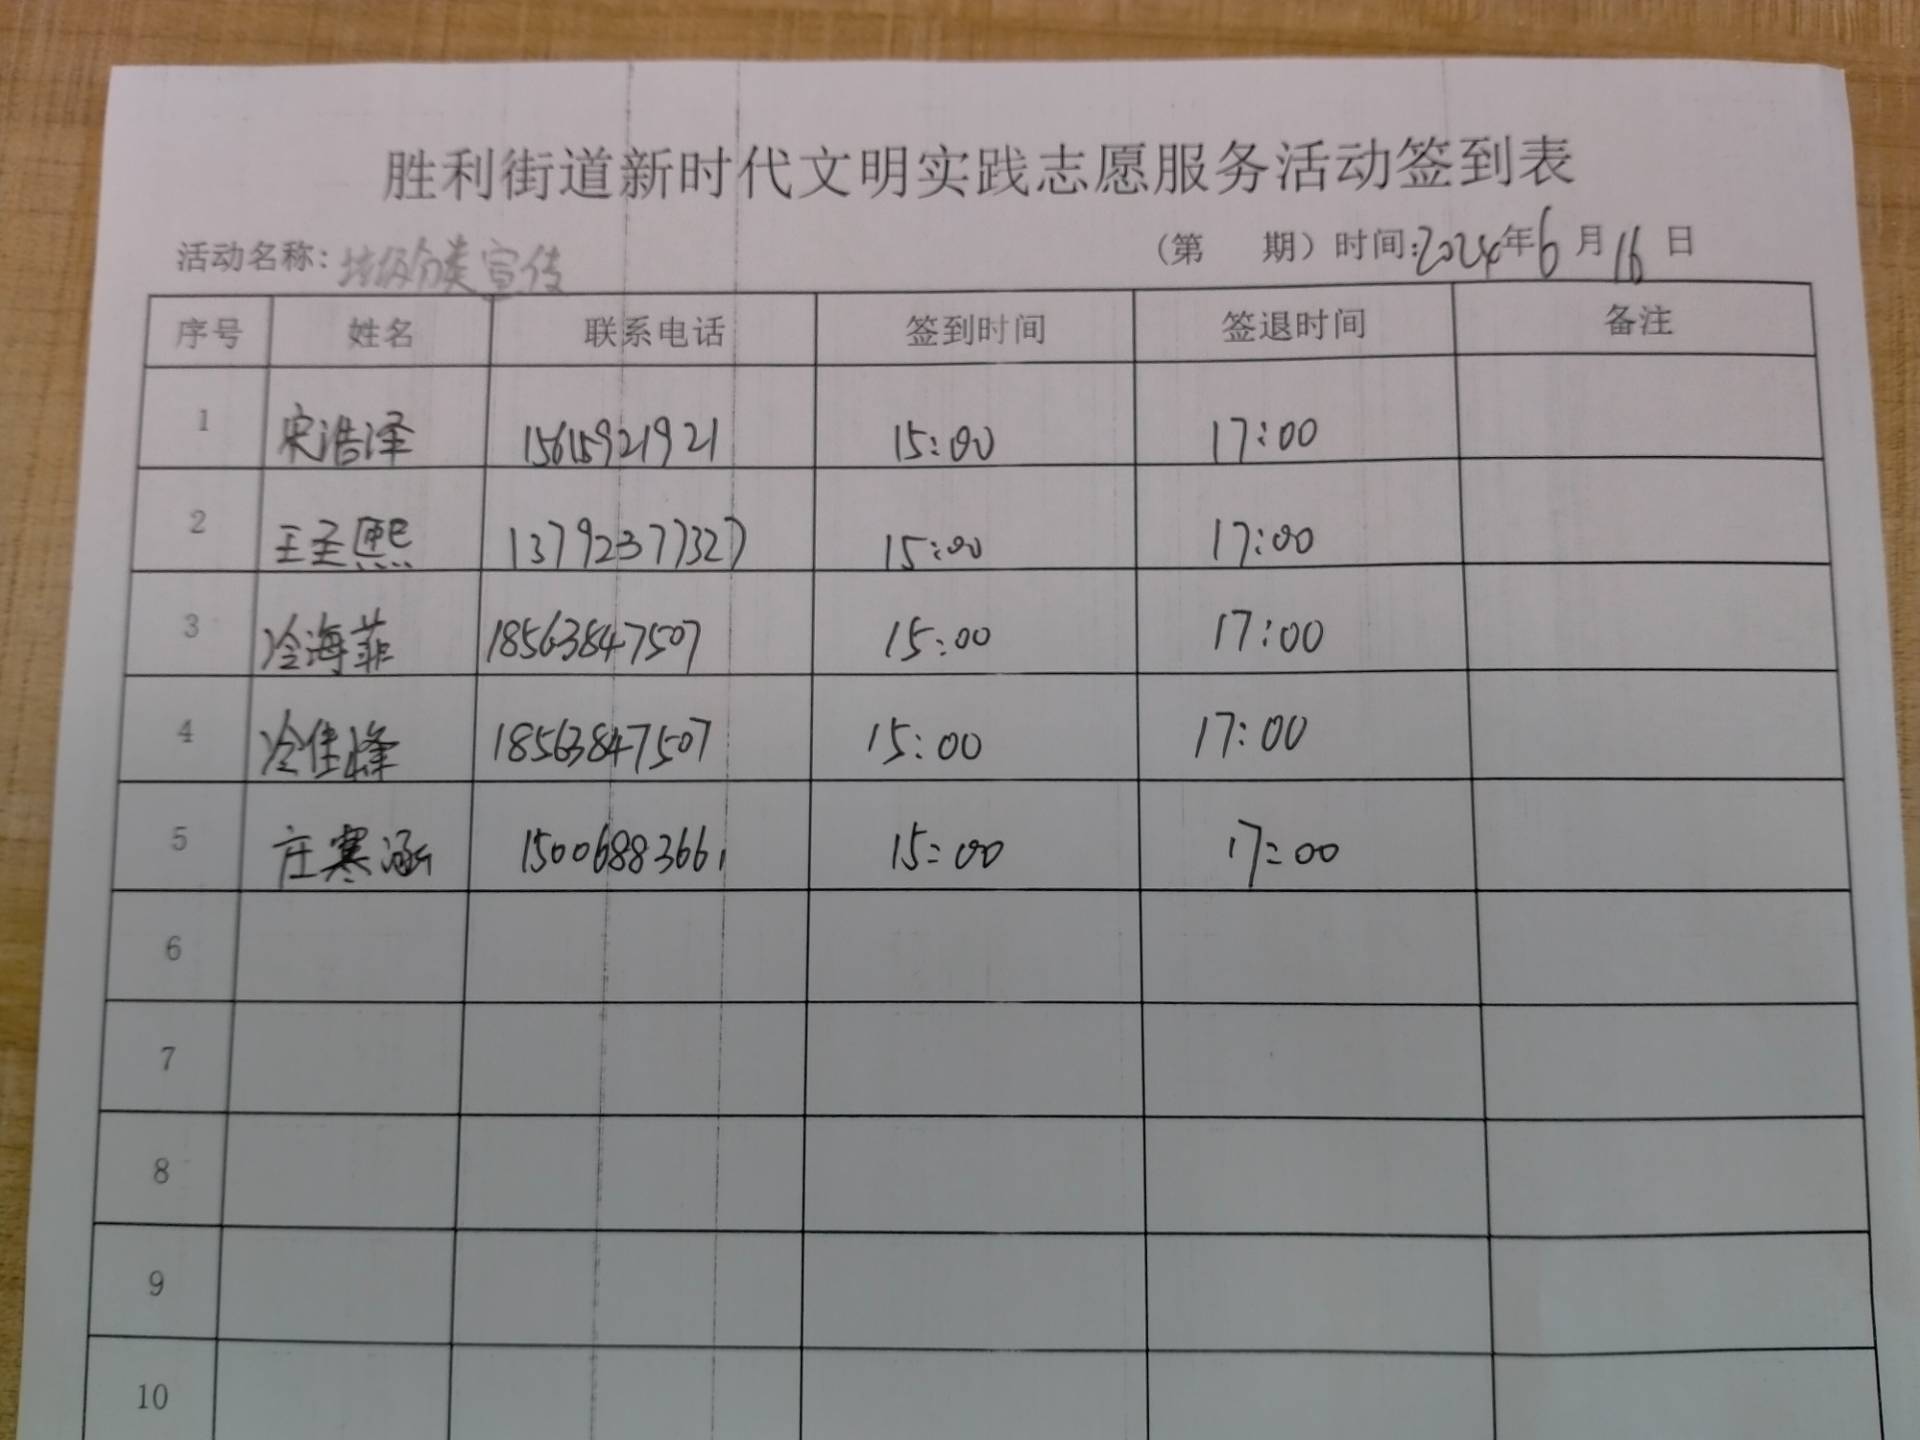 胜利街道新时代文明实践志愿服务活动签到表
活动名称：垃圾分类宣传 （第 期）时间：2024年6月16日
序号 姓名 联系电话 签到时间 签退时间 备注
1 宋浩泽 15615921921 15:00 17:00
2 王圣熙 13792377327 15:00 17:00
3 冷海菲 18563847507 15:00 17:00
4 冷佳峰 18563847507 15:00 17:00
5 庄寒涵 15006883661 15:00 17:00
6
7
8
9
10